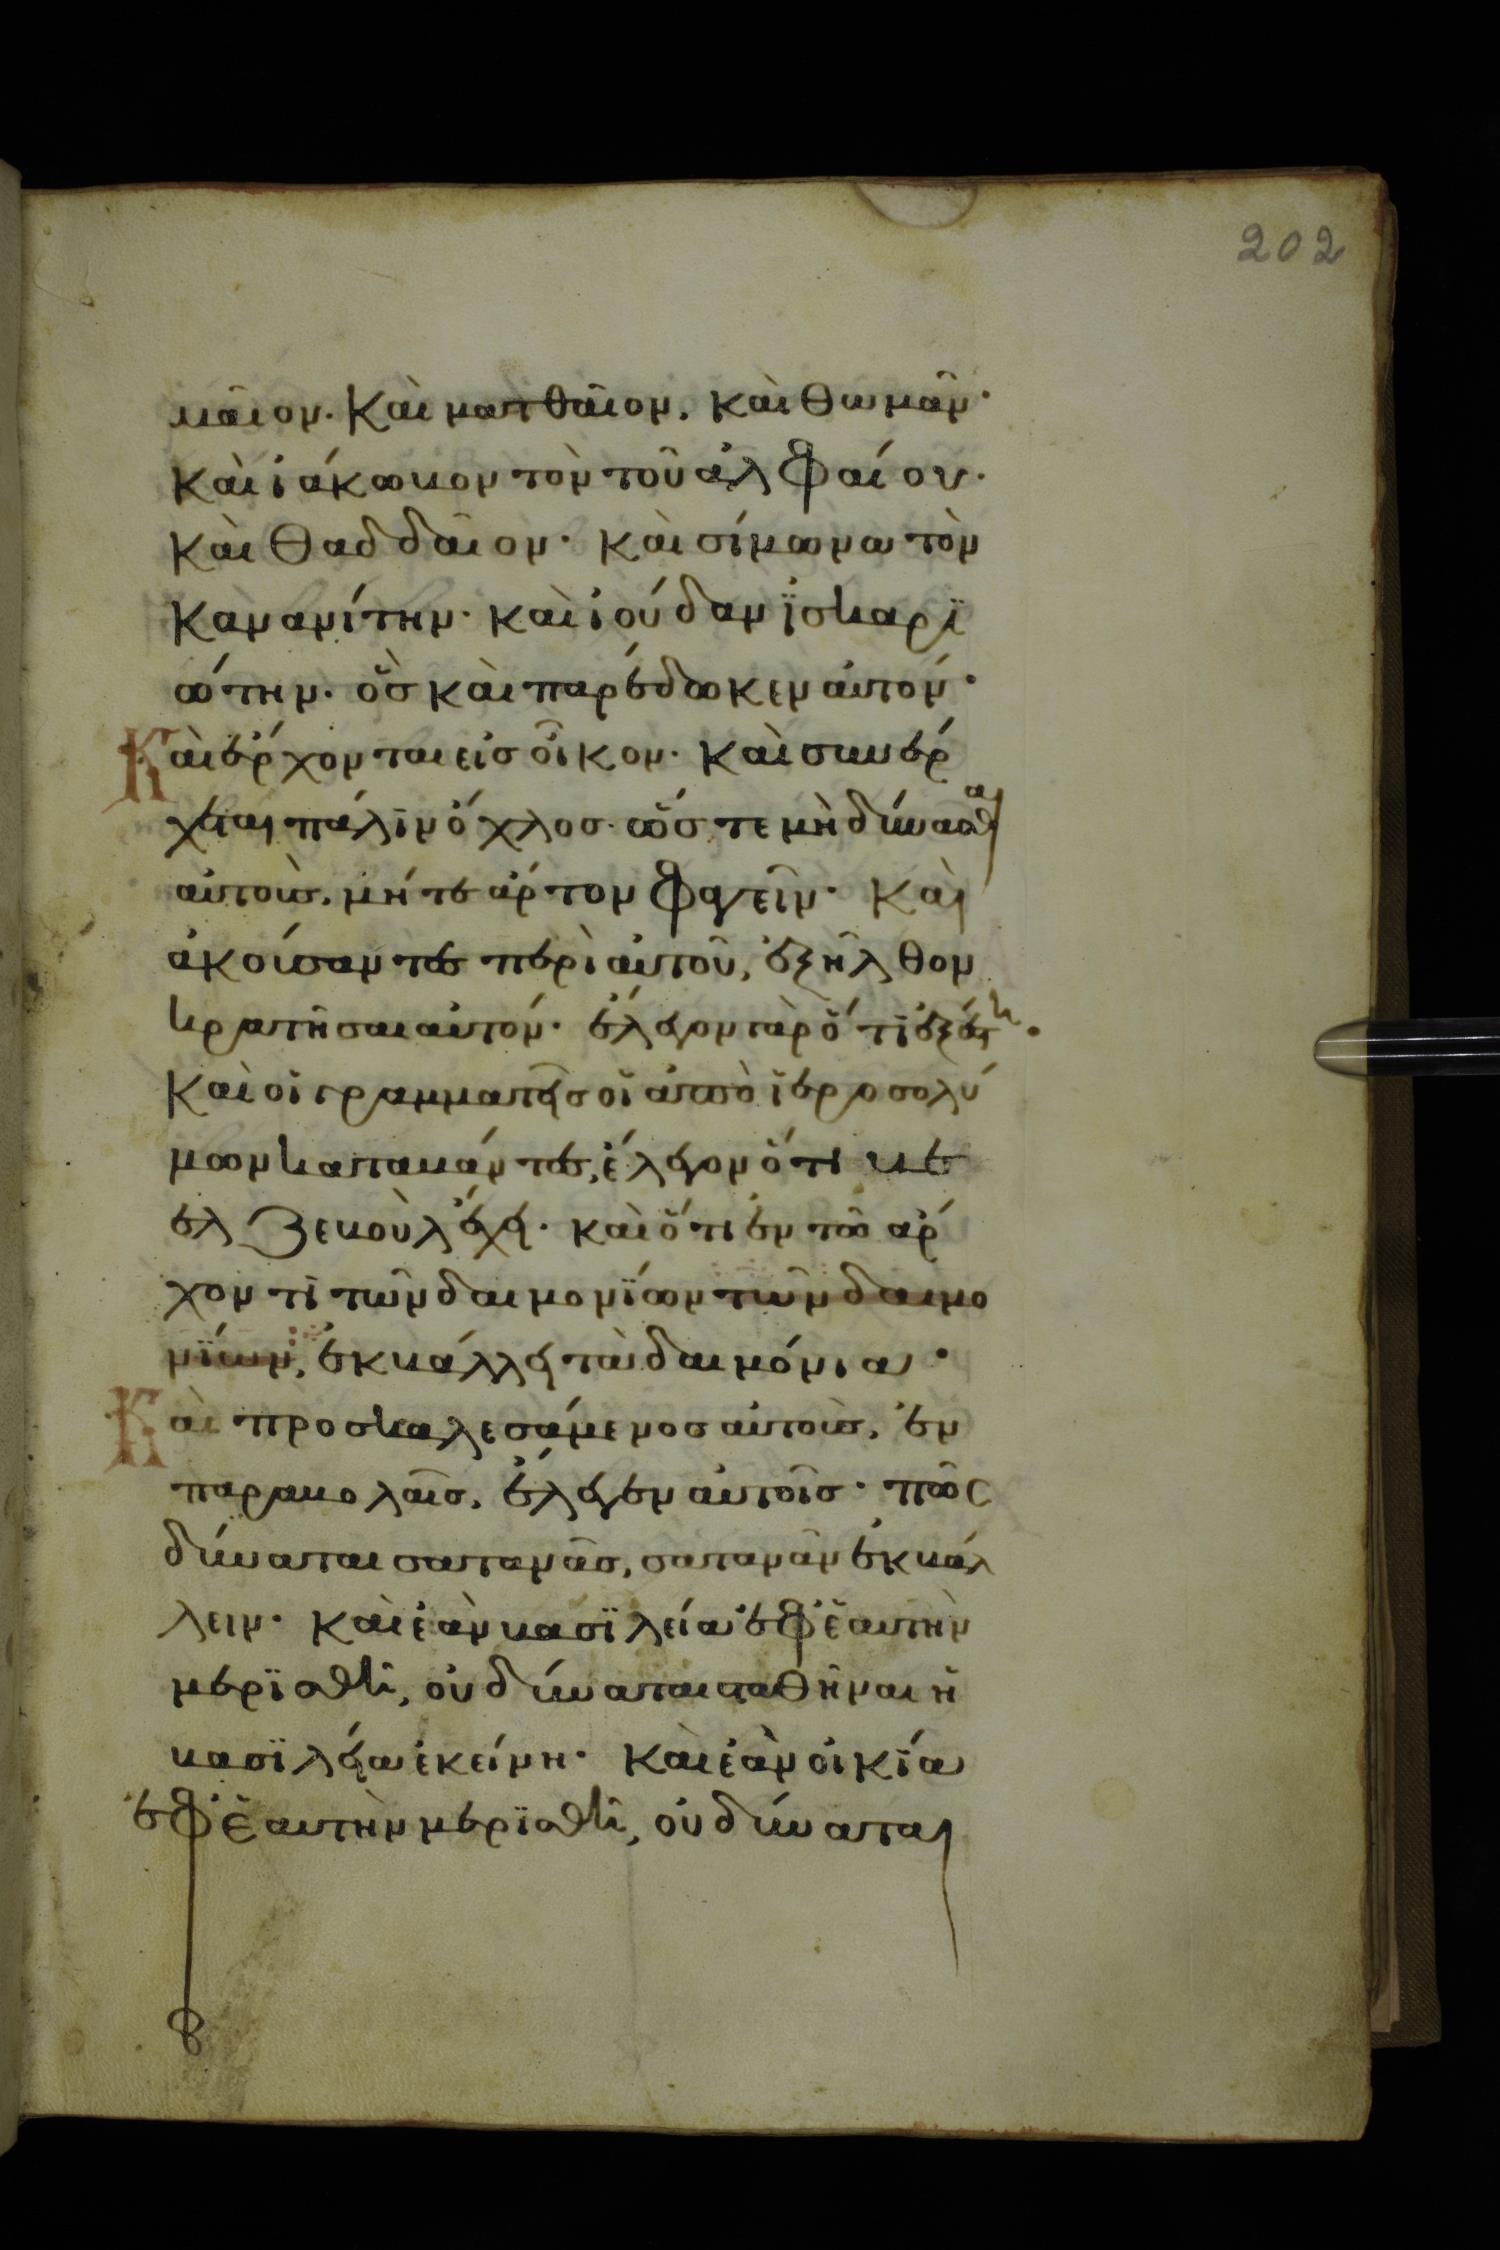 202
μαῖον· καὶ ματθαῖον, καὶ θωμᾶν·
καὶ ἰάκωβον τὸν τοῦ ἀλφαίου·
καὶ θαδδαῖον· καὶ σίμωνα τὸν
κανανίτην· καὶ ἰούδαν ἰσκαρϊ
ώτην· ὃς καὶ παρέδωκεν αὐτόν·
Καὶ ἔρχονται εἰς οἶκον· καὶ συνέρ
χεται πάλιν ὄχλος· ὥστε μὴ δύνασθαι
αὐτοὺς, μήτε ἄρτον φαγεῖν· καὶ
ἀκούσαντες περὶ αὐτοῦ, ἐξῆλθον
κρατῆσαι αὐτόν· ἔλεγον γὰρ ὅτι ἐξέστη·
καὶ οἱ γραμματεῖς οἱ ἀπὸ ἱεροσολύ
μων καταβάντες, ἔλεγον ὅτι βε
ελζεβοὺλ ἔχει· καὶ ὅτι ἐν τῶ ἄρ
χοντι τῶν δαιμονίων τῶν δαιμο
νίων, ἐκβάλλει τὰ δαιμόνια·
Καὶ προσκαλεσάμενος αὐτοὺς, ἐν
παραβολαῖς, ἔλεγεν αὐτοῖς· πῶς
δύναται σατανᾶς, σατανᾶν ἐκβάλ
λειν· καὶ ἐὰν βασϊλεία ἐφ ἑαυτὴν
μερισθῆ, οὐ δύναται σταθῆναι ἡ
βασϊλεία ἐκείνη· καὶ ἐὰν οἰκία
ἐφ ἑαυτὴν μερϊσθῆ, οὐ δύναται